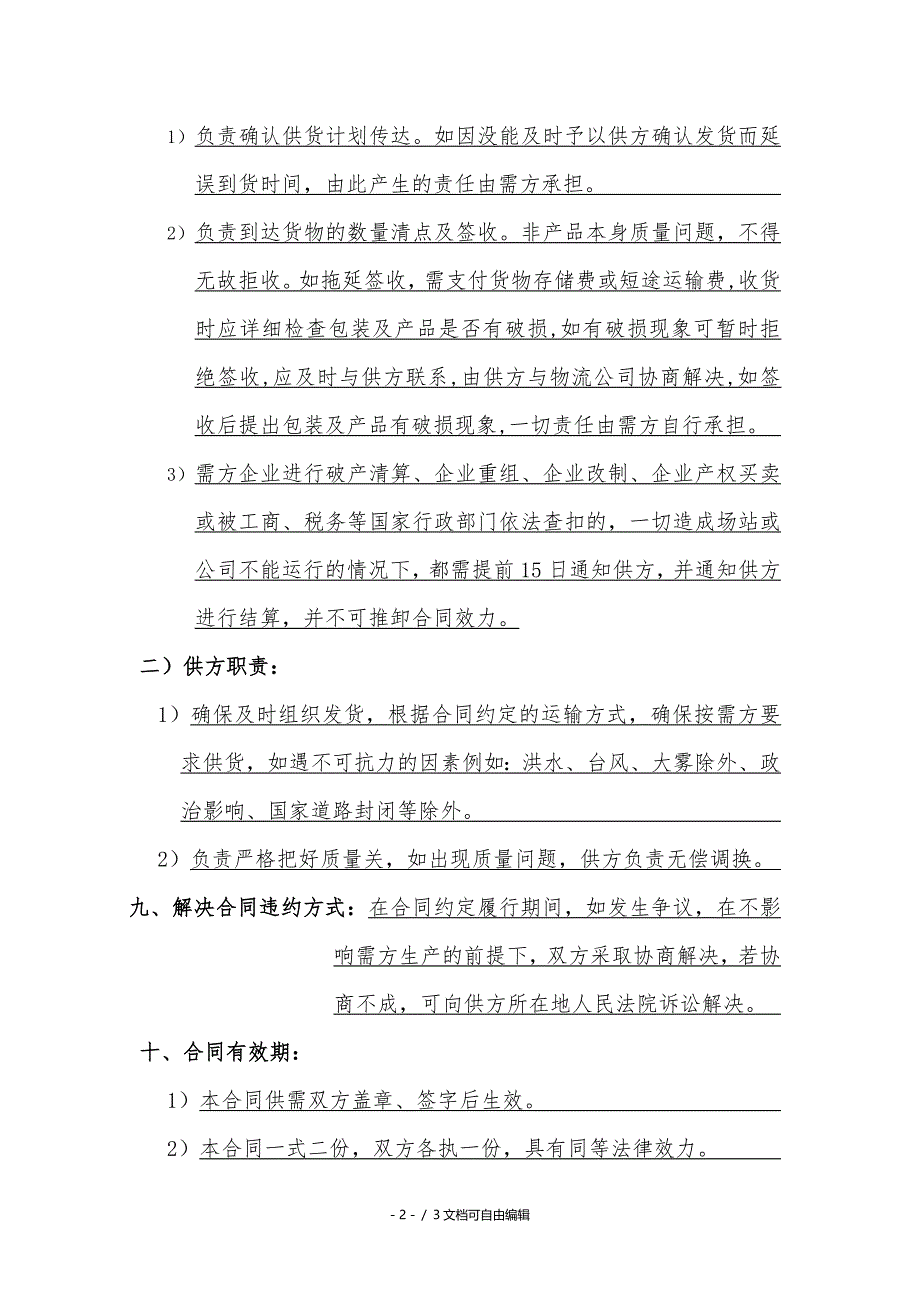 1）负责确认供货计划传达。如因没能及时予以供方确认发货而延
误到货时间，由此产生的责任由需方承担。
2）负责到达货物的数量清点及签收。非产品本身质量问题，不得
无故拒收。如拖延签收，需支付货物存储费或短途运输费,收货
时应详细检查包装及产品是否有破损,如有破损现象可暂时拒
绝签收,应及时与供方联系,由供方与物流公司协商解决,如签
收后提出包装及产品有破损现象,一切责任由需方自行承担。
3）需方企业进行破产清算、企业重组、企业改制、企业产权买卖
或被工商、税务等国家行政部门依法查扣的，一切造成场站或
公司不能运行的情况下，都需提前15日通知供方，并通知供方
进行结算，并不可推卸合同效力。
二）供方职责：
1）确保及时组织发货，根据合同约定的运输方式，确保按需方要
求供货，如遇不可抗力的因素例如：洪水、台风、大雾除外、政
治影响、国家道路封闭等除外。
2）负责严格把好质量关，如出现质量问题，供方负责无偿调换。
九、解决合同违约方式：在合同约定履行期间，如发生争议，在不影
响需方生产的前提下，双方采取协商解决，若协
商不成，可向供方所在地人民法院诉讼解决。
十、合同有效期：
1）本合同供需双方盖章、签字后生效。
2）本合同一式二份，双方各执一份，具有同等法律效力。
- 2 - / 3文档可自由编辑